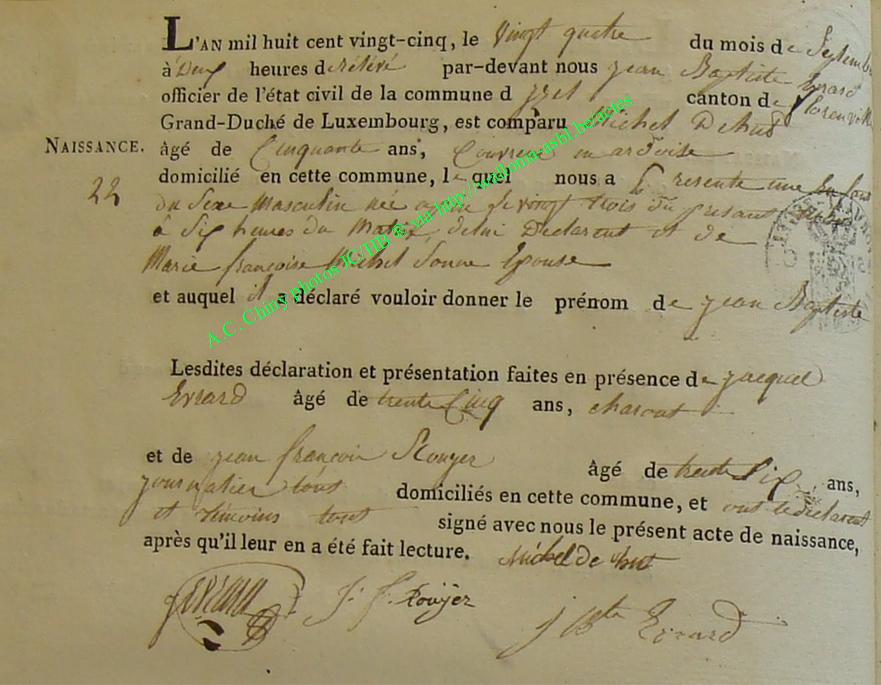 L'AN mil huit cent vingt-cinq, le Vingt quatre du mois de Septembre
à Deux heures de relevé par-devant nous jean Baptiste Evrard
officier de l'état civil de la commune d jzel canton de florenville
Grand-Duché de Luxembourg, est comparu Michel Dehut
NAISSANCE. âgé de Cinquante ans, Couvreur en ardoise
22 domicilié en cette commune, lequel nous a presenté une Enfant
du Sexe Masculin née a jzel le vingt trois du presant mois
a Six heures du Matin, delui Declarent et de
Marie françoise Michel Sonne Epouse
et auquel il a déclaré vouloir donner le prénom de jean Baptiste
Lesdites déclaration et présentation faites en présence de jacquel
Evrard âgé de trente Cinq ans, charont
et de jean françoir Rouyer âgé de trente Six ans,
journalier tous domiciliés en cette commune, et ont le declarent
et témoins tout signé avec nous le présent acte de naissance,
après qu'il leur en a été fait lecture. Michel de hut
jevrard J. f. Rouÿer
j Bte Evrard
A.C. Chiny photos JC/HB © via http://wallonia-asbl.be/actes